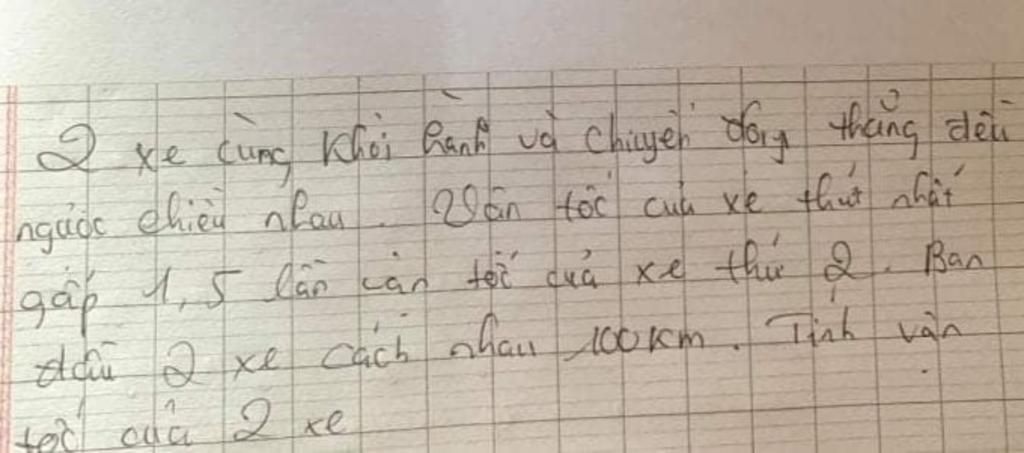 2 xe cùng khởi hành và chuyển động thẳng đều
ngược chiều nhau. Vận tốc của xe thứ nhất
gấp 1,5 lần vận tốc của xe thứ 2. Ban
đầu 2 xe cách nhau 100km. Tính vận
tốc của 2 xe